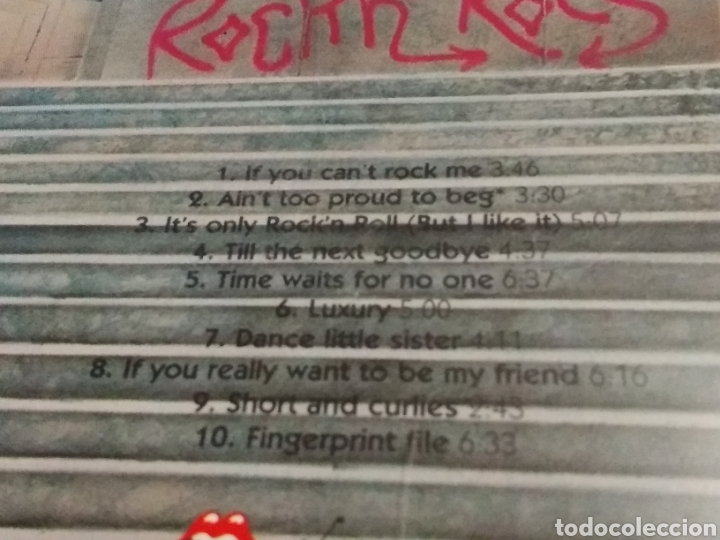 Rock'n Roll
1. If you can't rock me 3:46
2. Ain't too proud to beg* 3:30
3. It's only Rock'n Roll (But I like it) 5:07
4. Till the next goodbye 4:37
5. Time waits for no one 6:37
6. Luxury 5:00
7. Dance little sister 4:11
8. If you really want to be my friend 6:16
9. Short and curlies 2:43
10. Fingerprint file 6:33
todocoleccion